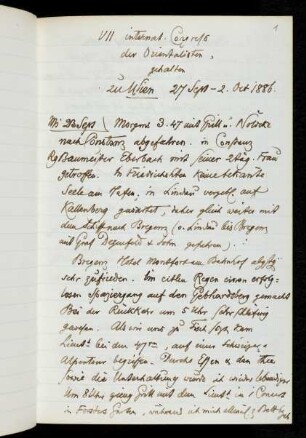 1
VII internat. Congress
der Orientalisten,
gehalten
zu Wien 27 Sept - 2. Oct 1886.
Morgens 3.47 mit Gull u. Nöldeke
nach Constanz abgefahren. in Constanz
RgBaumeister Eberbach mit seiner Frau
getroffen. In Friedrichshafen keine bekannte
Seele am Hafen, in Lindau vergebl. auf
Kallenberg gewartet, daher gleich weiter mit
dem Schiff nach Bregenz (v. Lindau bis Bregenz
mit Graf Degenfeld u. Sohn gefahren).
Bregenz Hotel Montfort am Bahnhof
sehr zufrieden. Im Regen einen erfolg-
losen Spaziergang auf den Gebhardsberg gemacht
Bei der Rückkehr um 5 Uhr sehr
gegessen. Als wir uns zu Tisch
Lieut. bei den auf einer Schweizer-
Alpentour begriffen. Durch Essen u. den
sowie die Unterhaltung wurde ich wieder
Um 8 Uhr gieng Gull mit dem Lieut. in 1 Concert
in Forsters Garten, während ich mich